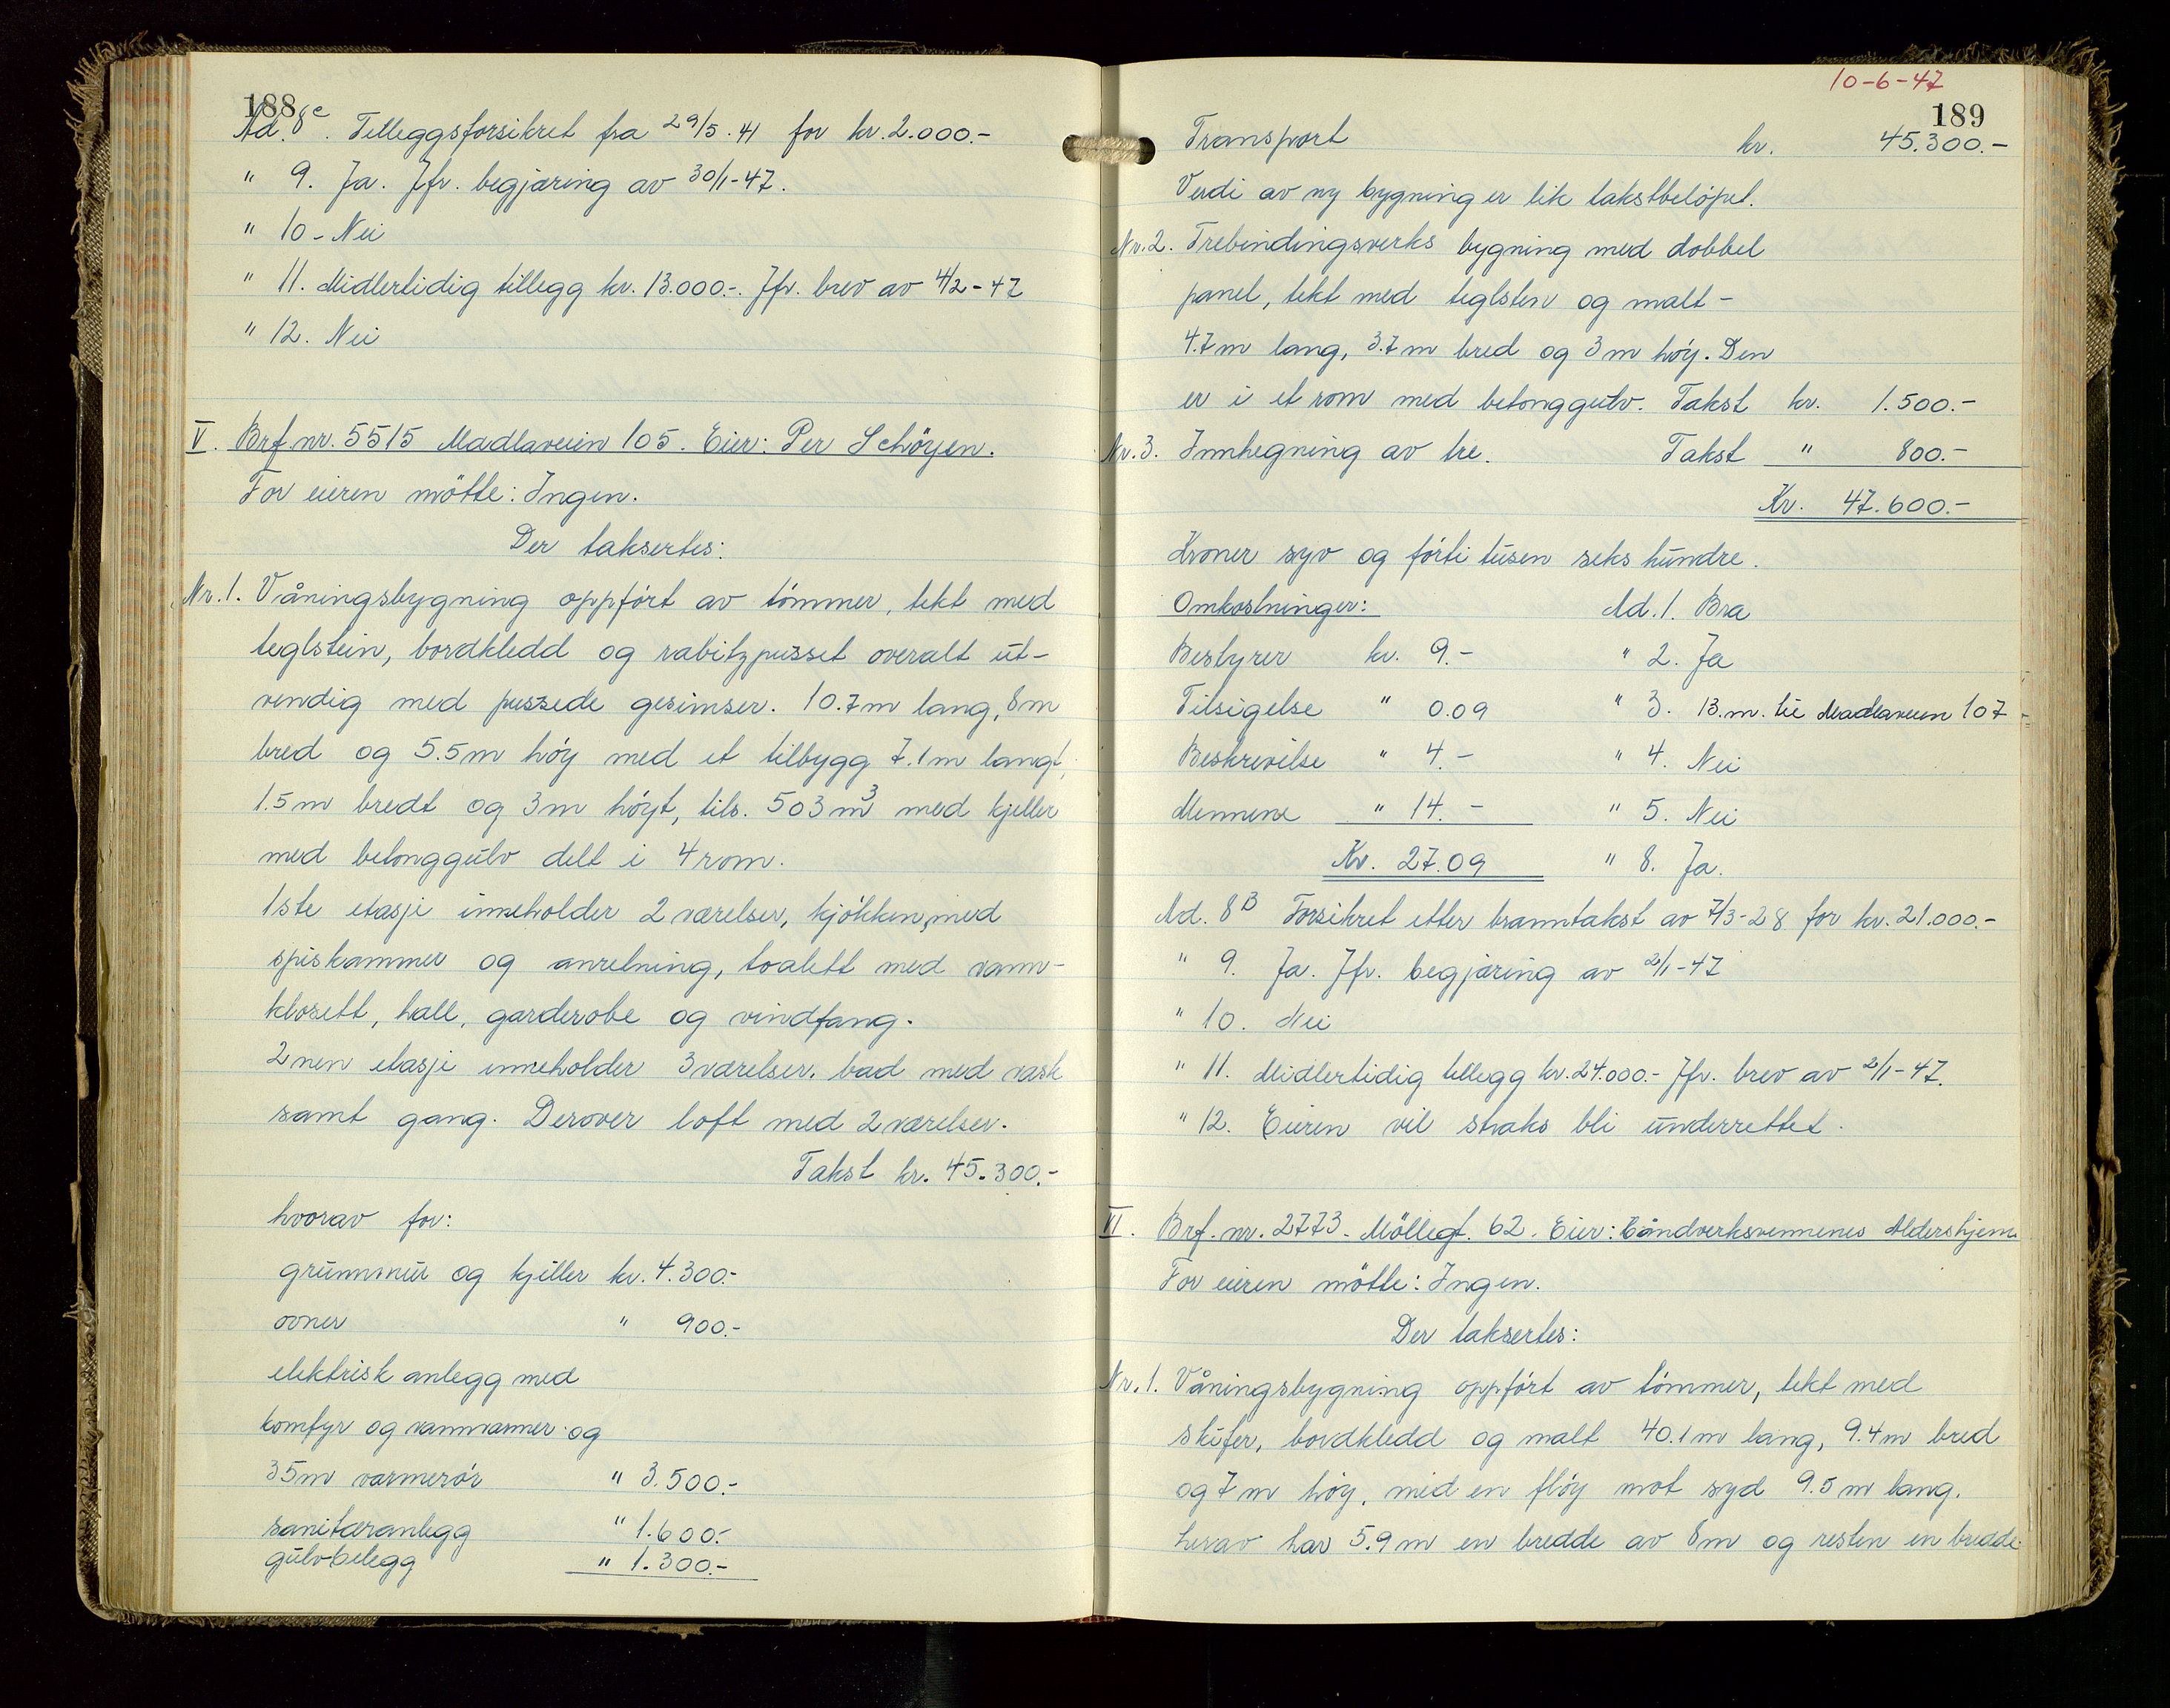 188
Ad. 8c. Tilleggsforsikret fra 29/5.41 for kr. 2.000.-
" 9. Ja. Jfr. begjæring av 30/1-47.
" 10 - Nei
" 11. Midlertidig tillegg kr. 13.000.-. Jfr. brev av 4/2-47
" 12. Nei
V. Brf. nr. 5515 Madlaveien 105. Eier: Per Schöyen.
For eieren mötte: Ingen.
Der taksertes:
Nr. 1. Våningsbygning oppfört av tömmer, tekt med
teglstein, bordkledd og rabitzpusset overalt ut-
vendig med pussede gesimser. 10.7m lang, 8m
bred og 5.5m höy med et tilbygg 7.1m langt,
1.5m bredt og 3m höyt, tils. 503m3 med kjeller
med betonggulv delt i 4 rom.
1ste etasje inneholder 2 værelser, kjökken, med
spiskammer og anretning, toalett med vann-
klosett, hall, garderobe og vindfang.
2nen etasje inneholder 3 værelser, bad med vask
samt gang. Derover loft med 2 værelser.
Takst kr. 45.300.-
hvorav for:
grunnmur og kjeller kr. 4.300.-
ovner " 900.-
elektrisk anlegg med
komfyr og vannvarmer og
35m varmerör " 3.500.-
sanitæranlegg " 1.600.-
gulvbelegg " 1.300.-
10-6-47
189
Transport kr. 45.300.-
Verdi av ny bygning er lik takstbelöpet.
Nr. 2. Trebindingsverks bygning med dobbel
panel, tekt med teglsten og malt -
4.7m lang, 3.7m bred og 3m höy. Den
er i et rom med betonggulv. Takst kr. 1.500.-
Nr. 3. Innhegning av tre. Takst " 800.-
Kr. 47.600.-
Kroner syv og förti tusen seks hundre.
Omkostninger: Ad. 1. Bra
Bestyrer kr. 9.- " 2. Ja
Tilsigelse " 0.09 " 3. 13.m. til Madlaveien 107-
Beskrivelse " 4.- " 4. Nei
Mennene " 14.- " 5. Nei
Kr. 27.09 " 8. Ja.
Ad. 8B Forsikret etter branntakst av 7/3-28 for kr. 21.000.-
" 9. Ja. Jfr. begjæring av 2/1-47
" 10. Nei
" 11. Midlertidig tillegg kr. 24.000.- Jfr. brev av 2/1-47.
" 12. Eieren vil straks bli underrettet.
VI. Brf. nr. 2773. Möllegt. 62. Eier: Håndverksvennenes Aldershjem.
For eieren mötte: Ingen.
Der taksertes:
Nr. 1. Våningsbygning oppfört av tömmer, tekt med
skifer, bordkledd og malt 40.1m lang, 9.4m bred
og 7m höy, med en flöy mot syd 9.5m lang.
herav har 5.9m en bredde av 8m og resten en bredde